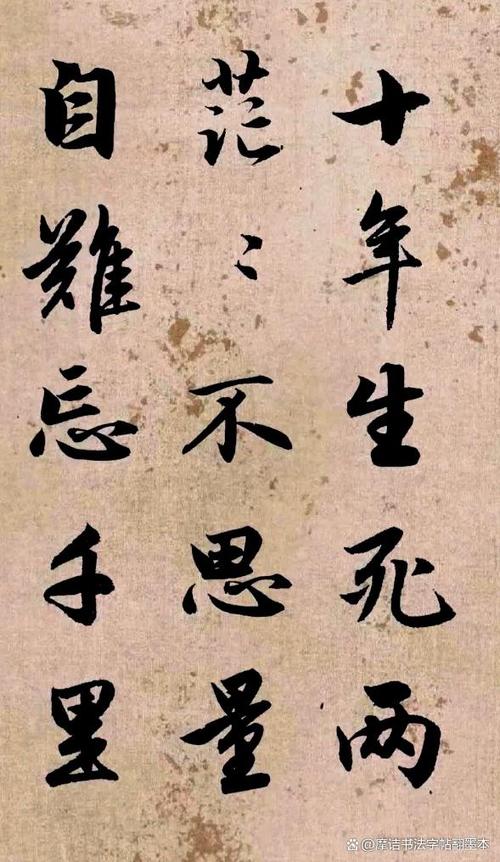 十年生死两
茫〻不思量
自難忘千里
摩诘书法字帖翻墨本